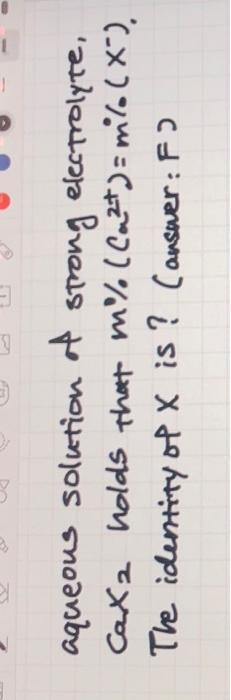 aqueous solution of strong electrolyte,
CaX₂ holds that m% (Ca²⁺) = m% (X⁻).
The identity of X is? (answer: F)